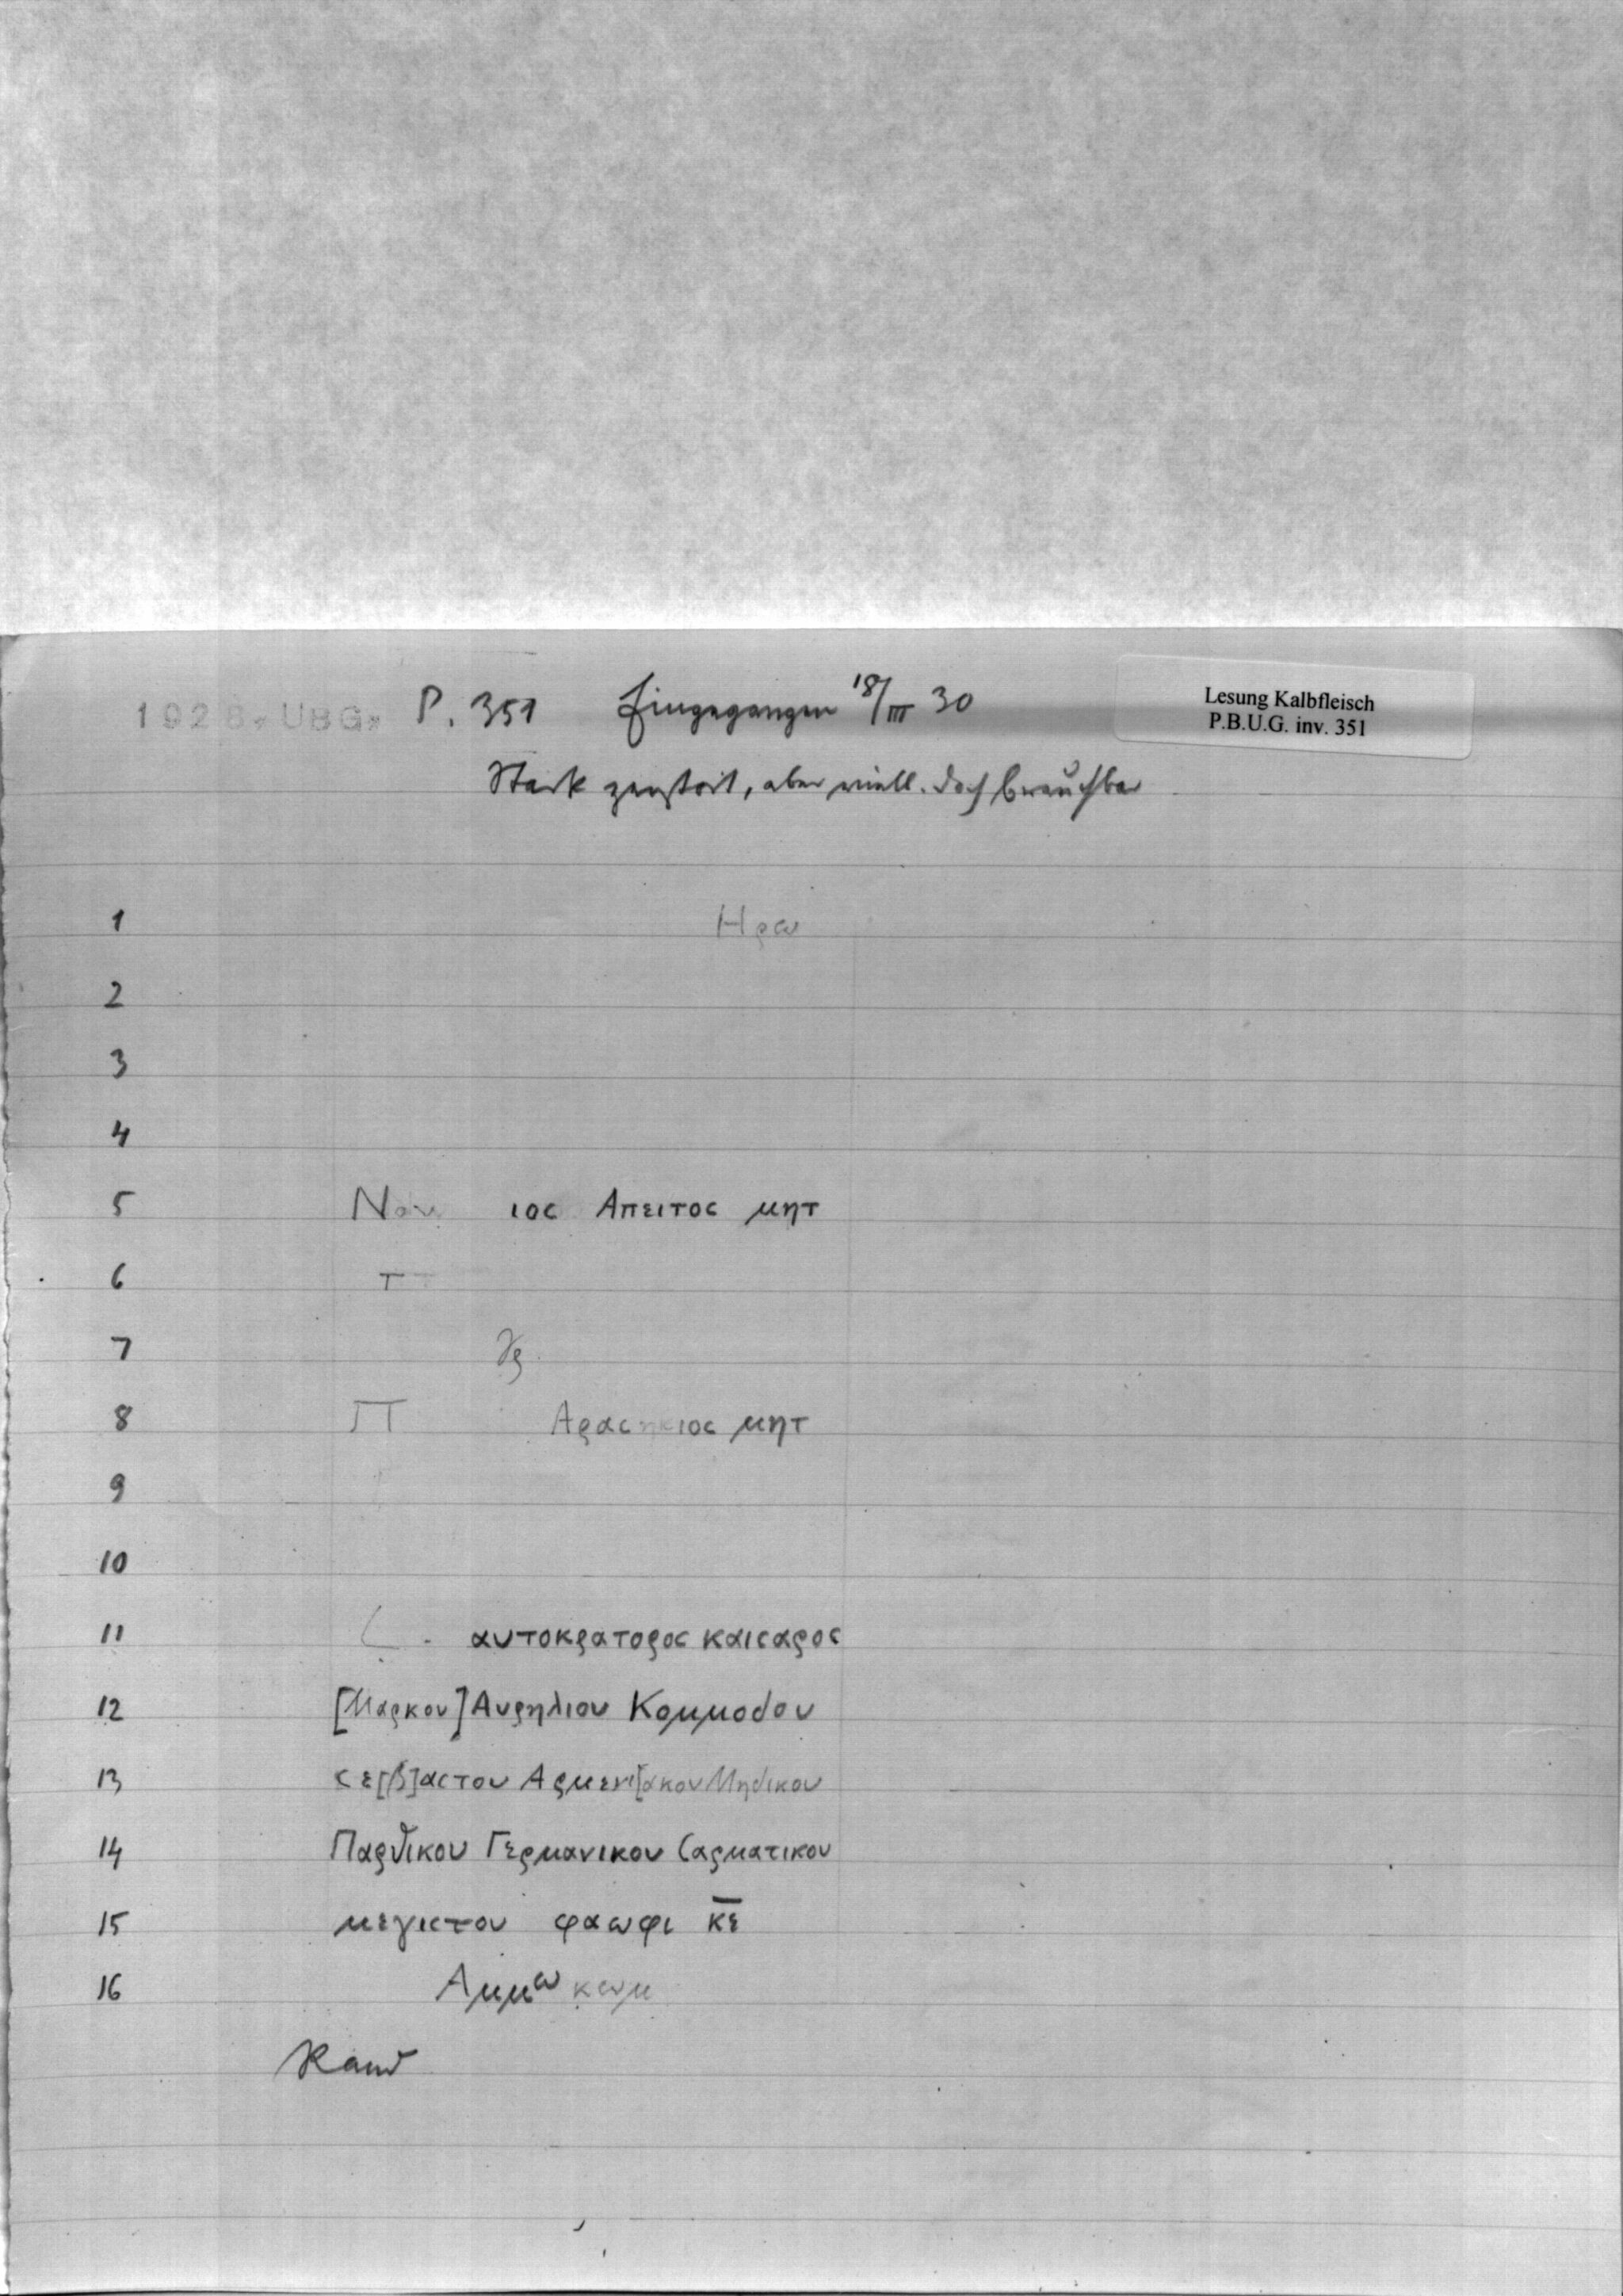 1928 UBG P. 351 Eingegangen 18/III 30
Lesung Kalbfleisch
P.B.U.G. inv. 351
Stark zerstört, aber viell. doch brauchbar
1 Ηρω
2
3
4
5 Ναν ιος Απειτος μητ
6 τ
7
8 Π Αρασηκιος μητ
9
10
11 αυτοκρατορος καισαρος
12 [Μαρκου] Αυρηλιου Κομμοδου
13 σε[β]αστου Αρμενι[ακου Μηδικου
14 Παρθικου Γερμανικου Σαρματικου
15 μεγιστου φαωφι κ̅ε̅
16 Αμμω κωμ
Rand